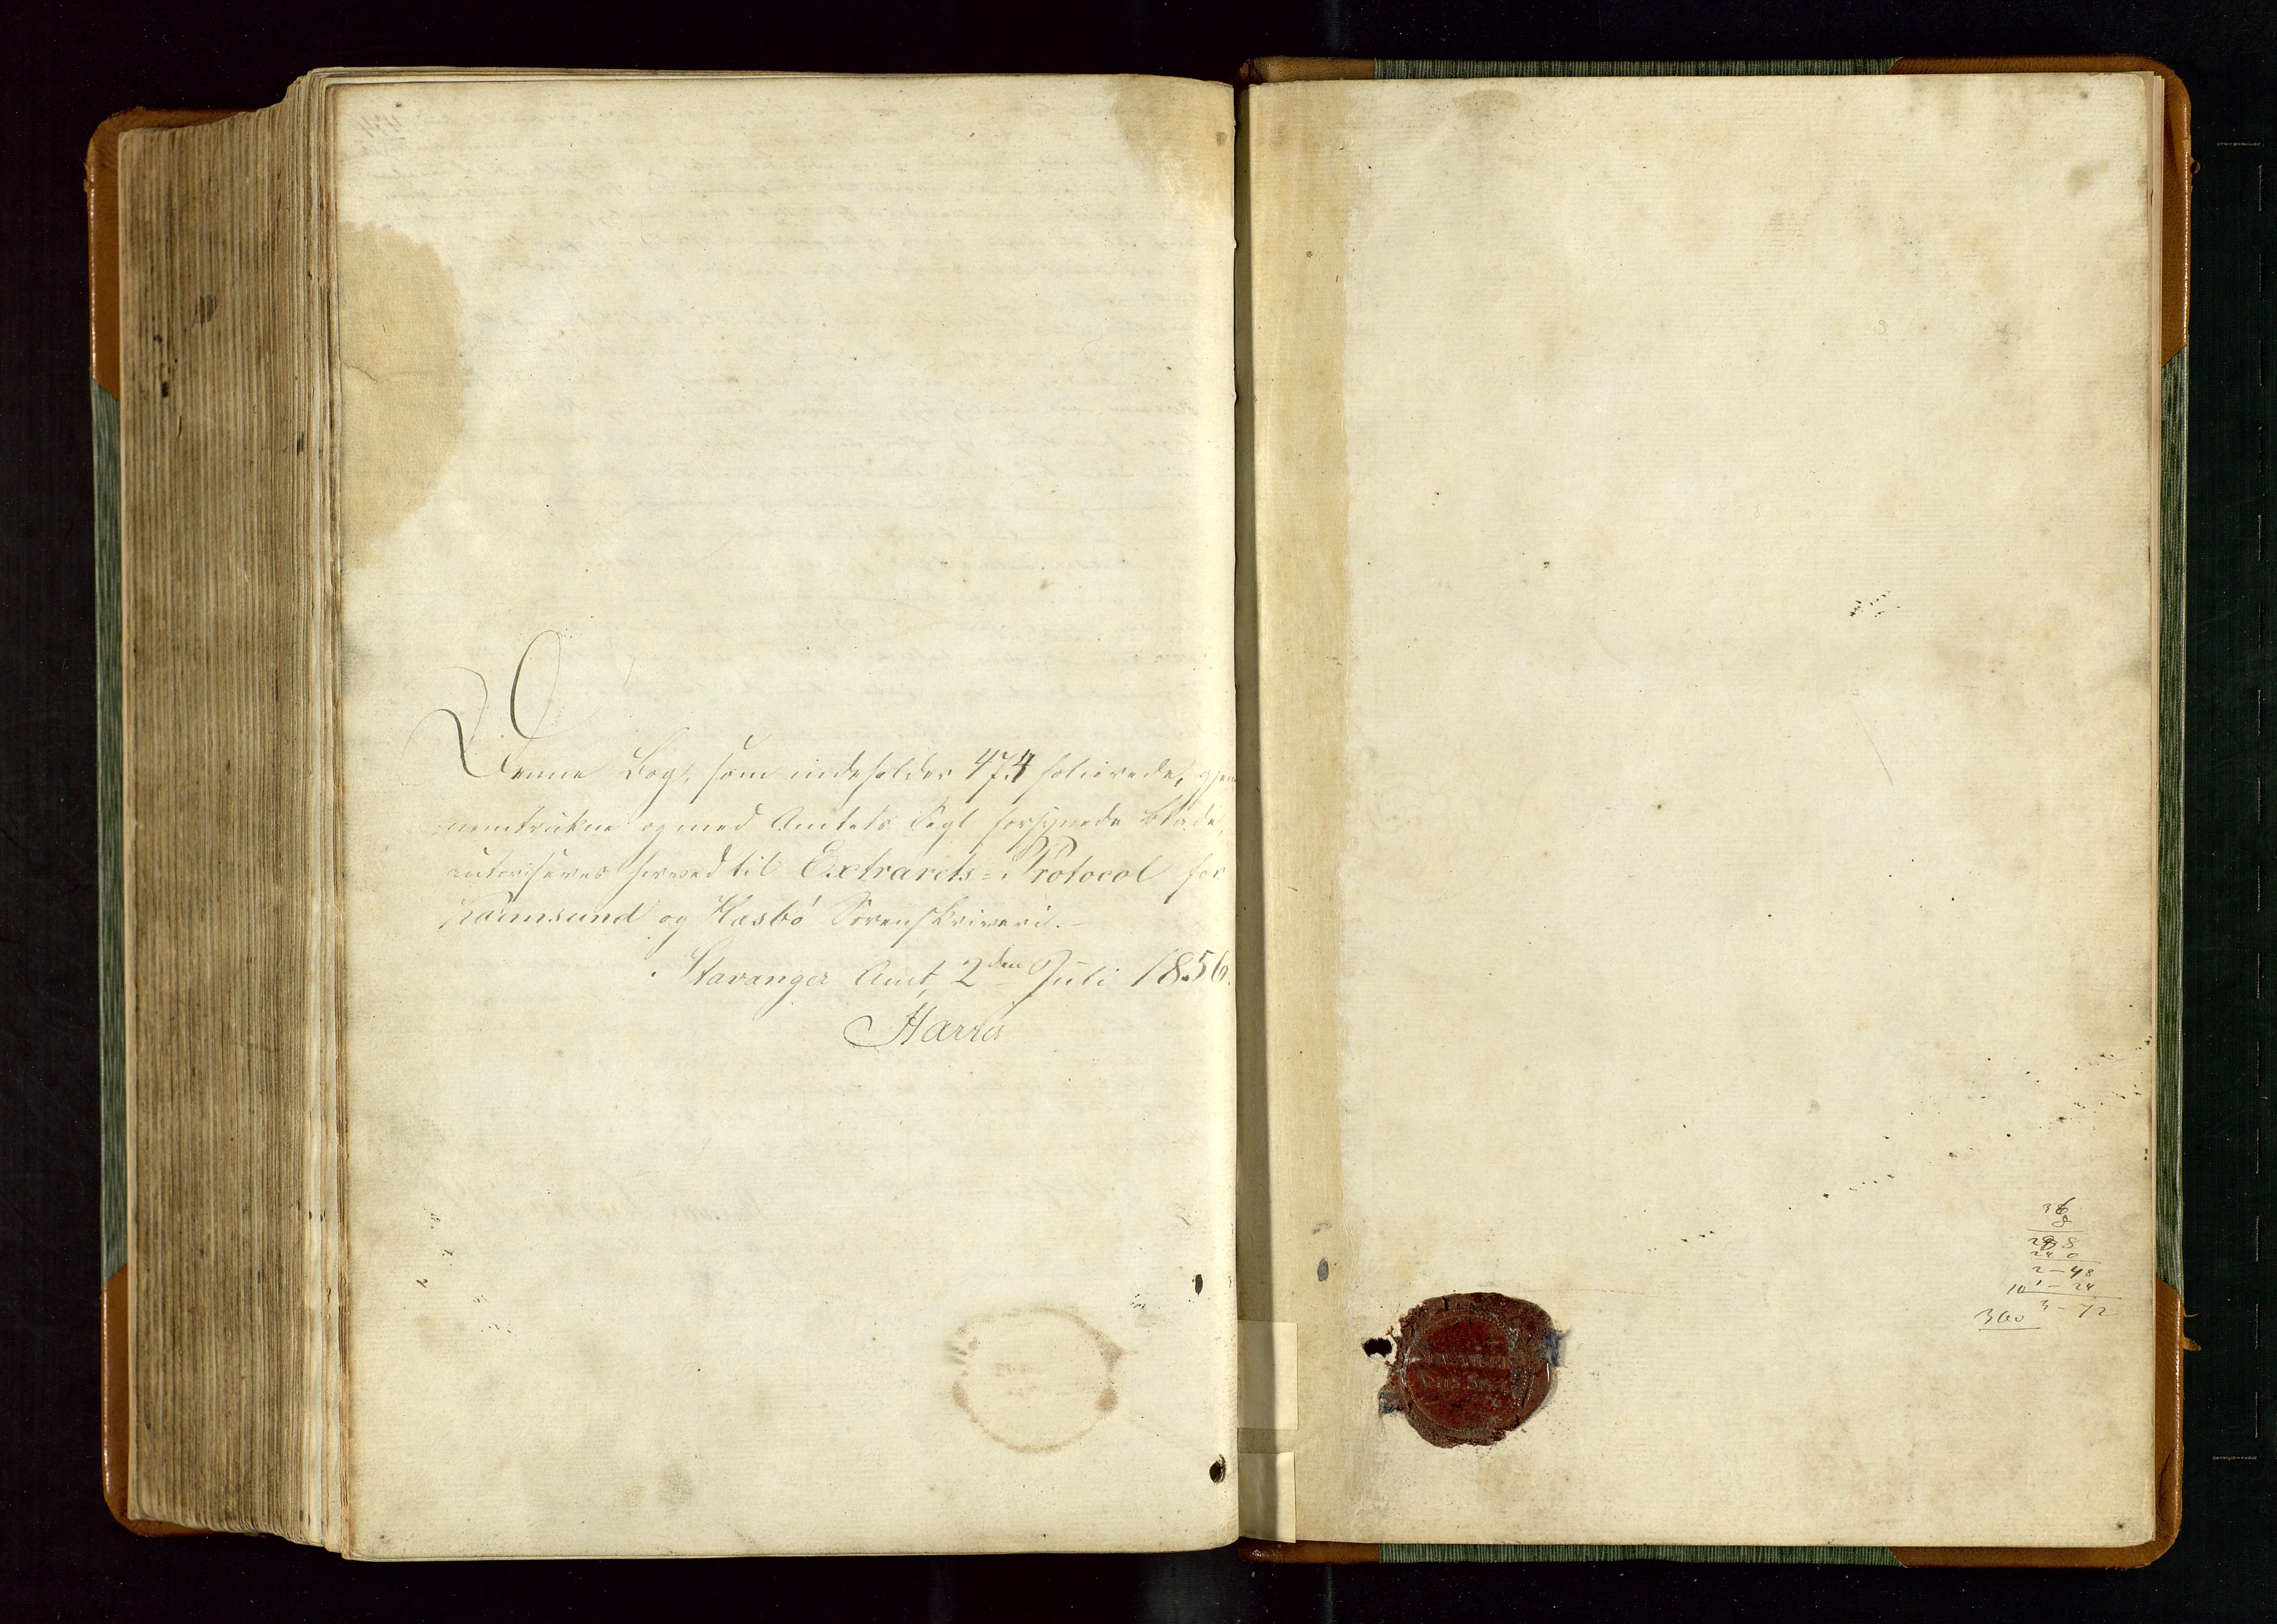 Denne Bog, som indeholder 474 folierede, gjen
nemtrukne og med Amtets Segl forsynede Blade,
autoriseres herved til Extrarets=Protocol for
Karmsund og Hesbø Sorenskriveri.-
Stavanger Amt, 2den Juli 1856.
Harris
36
8
288
240
2-48
10 1-24
360 3-72